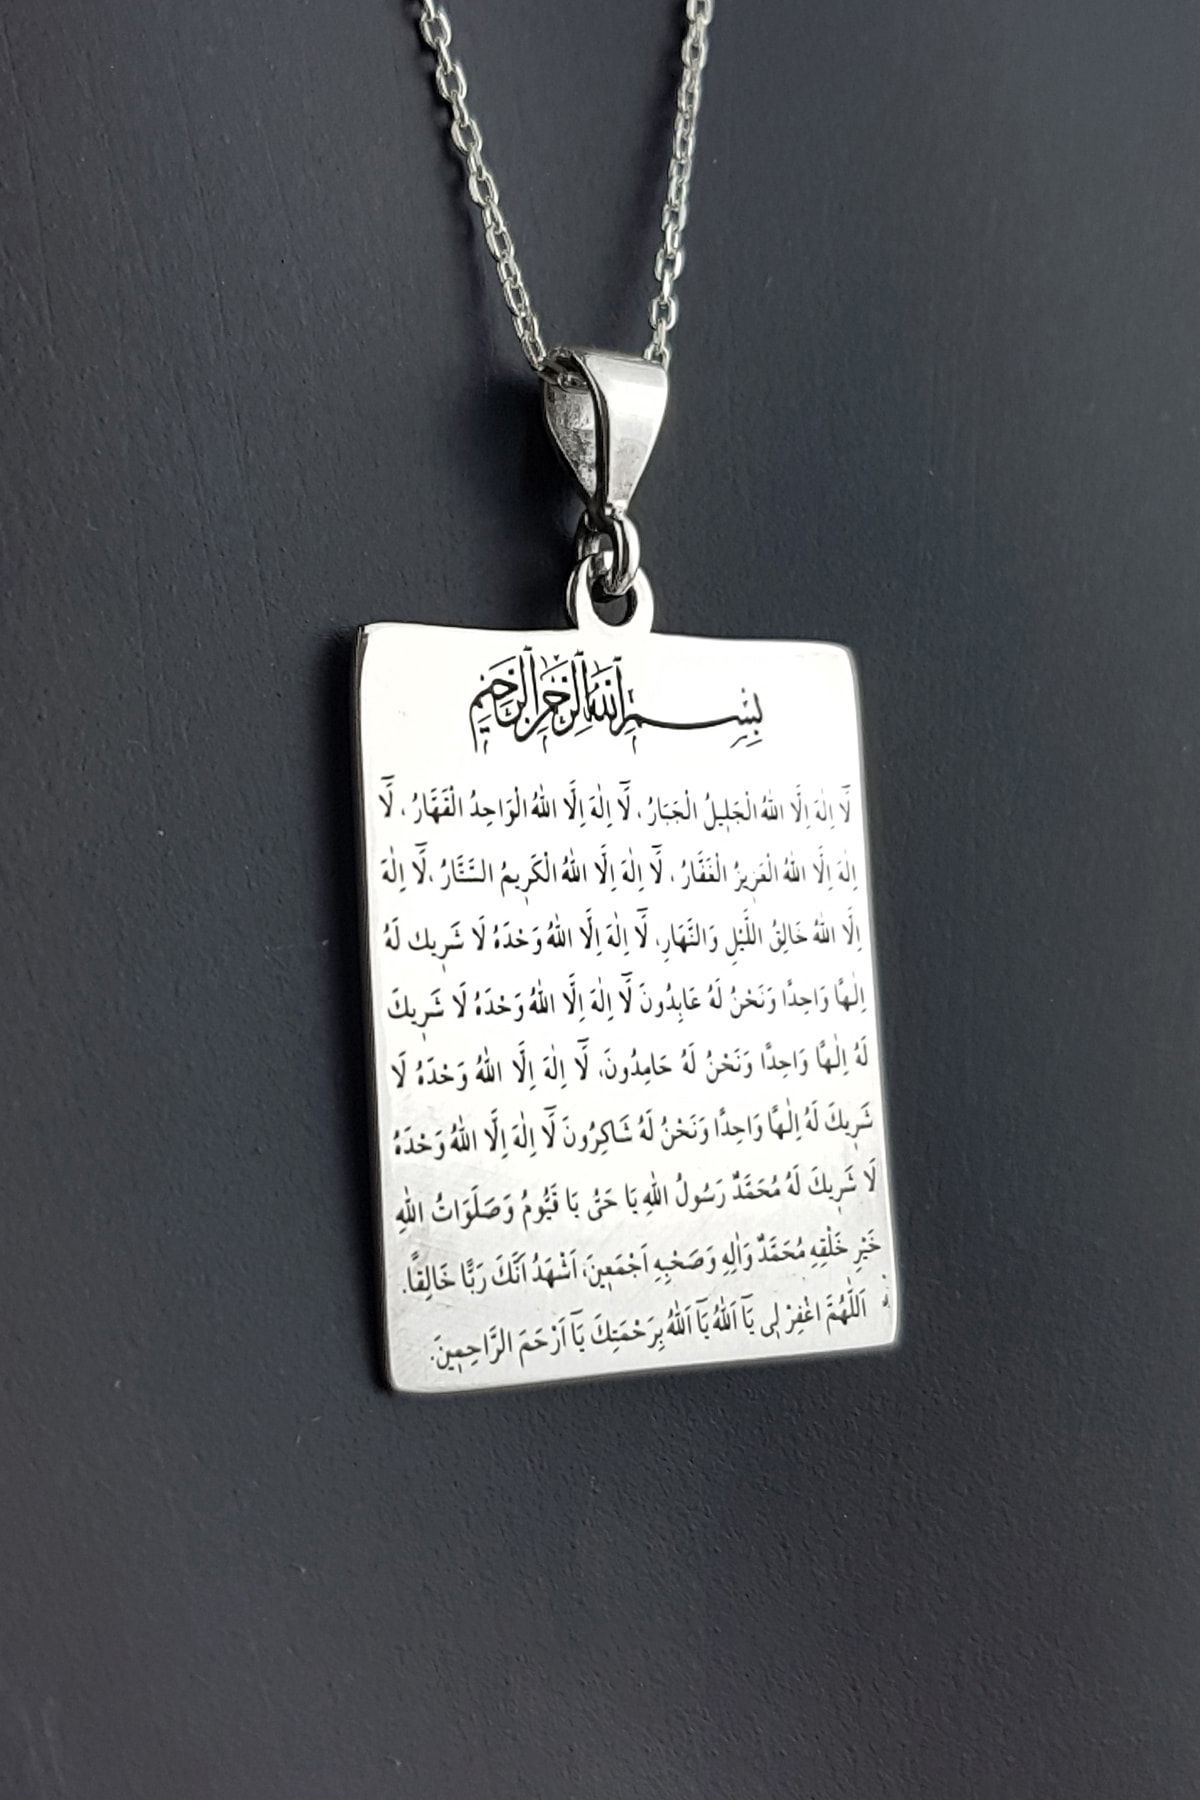 بِسْمِ اللهِ الرَّحْمٰنِ الرَّحِيمِ
لَٓا اِلٰهَ اِلَّا اللهُ الْجَلِيلُ الْجَبَارُ، لَٓا اِلٰهَ اِلَّا اللهُ الْوَاحِدُ الْقَهَّارُ، لَٓا
اِلٰهَ اِلَّا اللهُ الْعَزِيزُ الْغَفَّارُ، لَٓا اِلٰهَ اِلَّا اللهُ الْكَرِيمُ السَّتَّارُ، لَٓا اِلٰهَ
اِلَّا اللهُ خَالِقُ اللَّيْلِ وَالنَّهَارِ، لَٓا اِلٰهَ اِلَّا اللهُ وَحْدَهُ لَا شَرِيكَ لَهُ
اِلٰهًا وَاحِدًا وَنَحْنُ لَهُ عَابِدُونَ لَٓا اِلٰهَ اِلَّا اللهُ وَحْدَهُ لَا شَرِيكَ
لَهُ اِلٰهًا وَاحِدًا وَنَحْنُ لَهُ حَامِدُونَ، لَٓا اِلٰهَ اِلَّا اللهُ وَحْدَهُ لَا
شَرِيكَ لَهُ اِلٰهًا وَاحِدًا وَنَحْنُ لَهُ شَاكِرُونَ لَٓا اِلٰهَ اِلَّا اللهُ وَحْدَهُ
لَا شَرِيكَ لَهُ مُحَمَّدٌ رَسُولُ اللهِ يَا حَىُّ يَا قَيُّومُ وَصَلَوَاتُ اللهِ
خَيْرِ خَلْقِهِ مُحَمَّدٌ وَاٰلِهِ وَصَحْبِهِ اَجْمَعِينَ، اَشْهَدُ اَنَّكَ رَبًّا خَالِقًا.
اَللّٰهُمَّ اغْفِرْ لِى يَٓا اَللهُ يَٓا اَللهُ بِرَحْمَتِكَ يَٓا اَرْحَمَ الرَّاحِمِينَ.